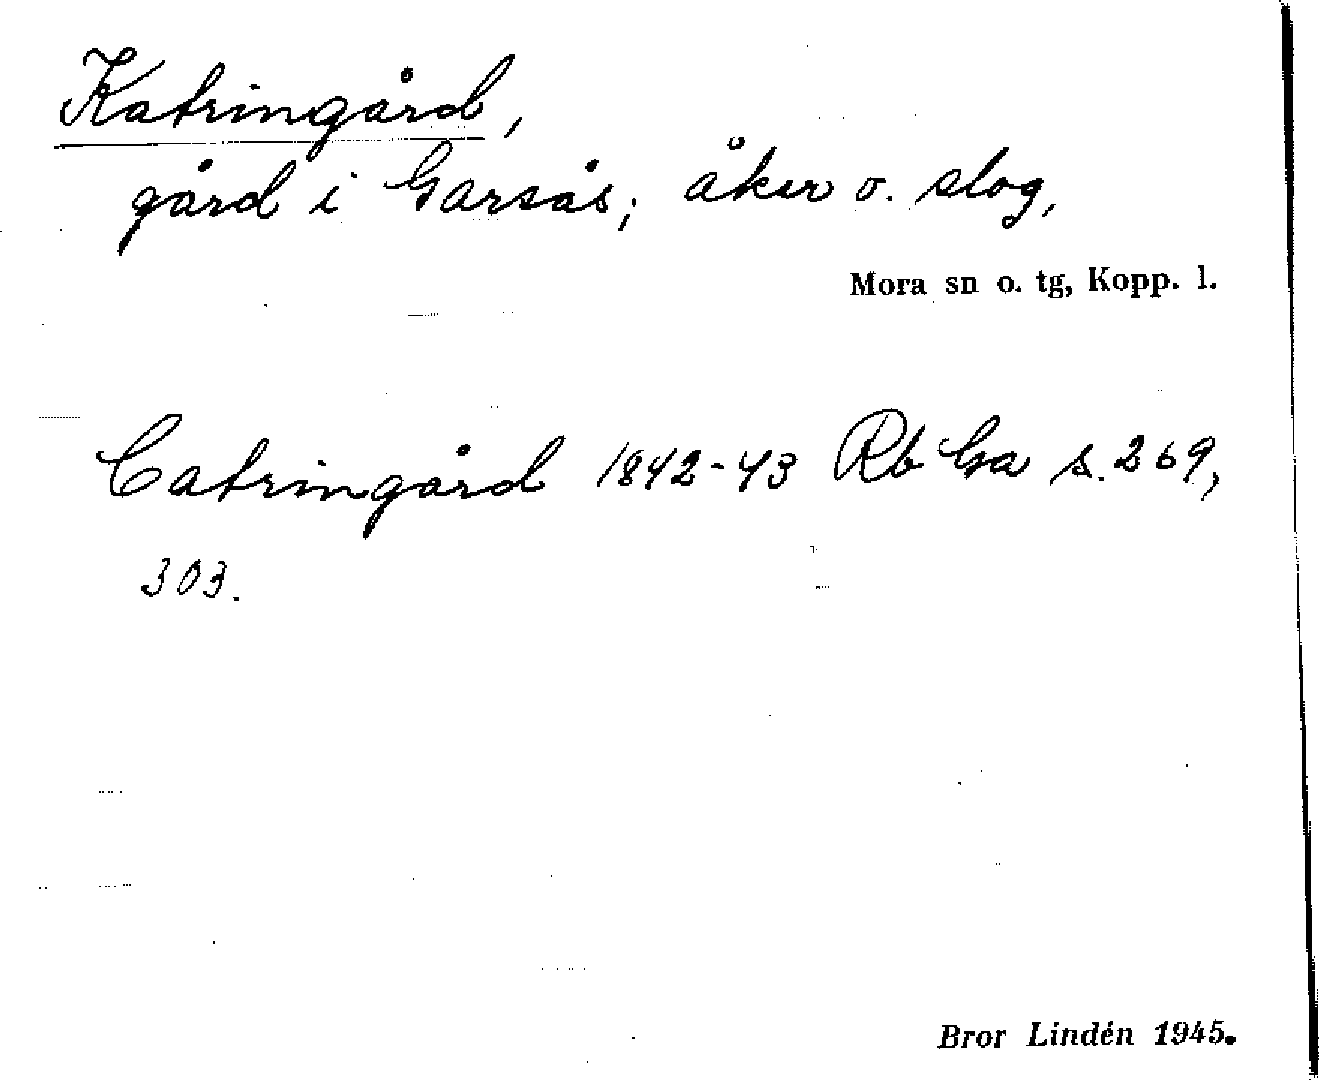 Katringård,
gård i Garsås; åker o. slog,
Mora sn o. tg, Kopp. l.
Catringård 1842-43 Rb Ga s. 269,
303.
Bror Lindén 1945.